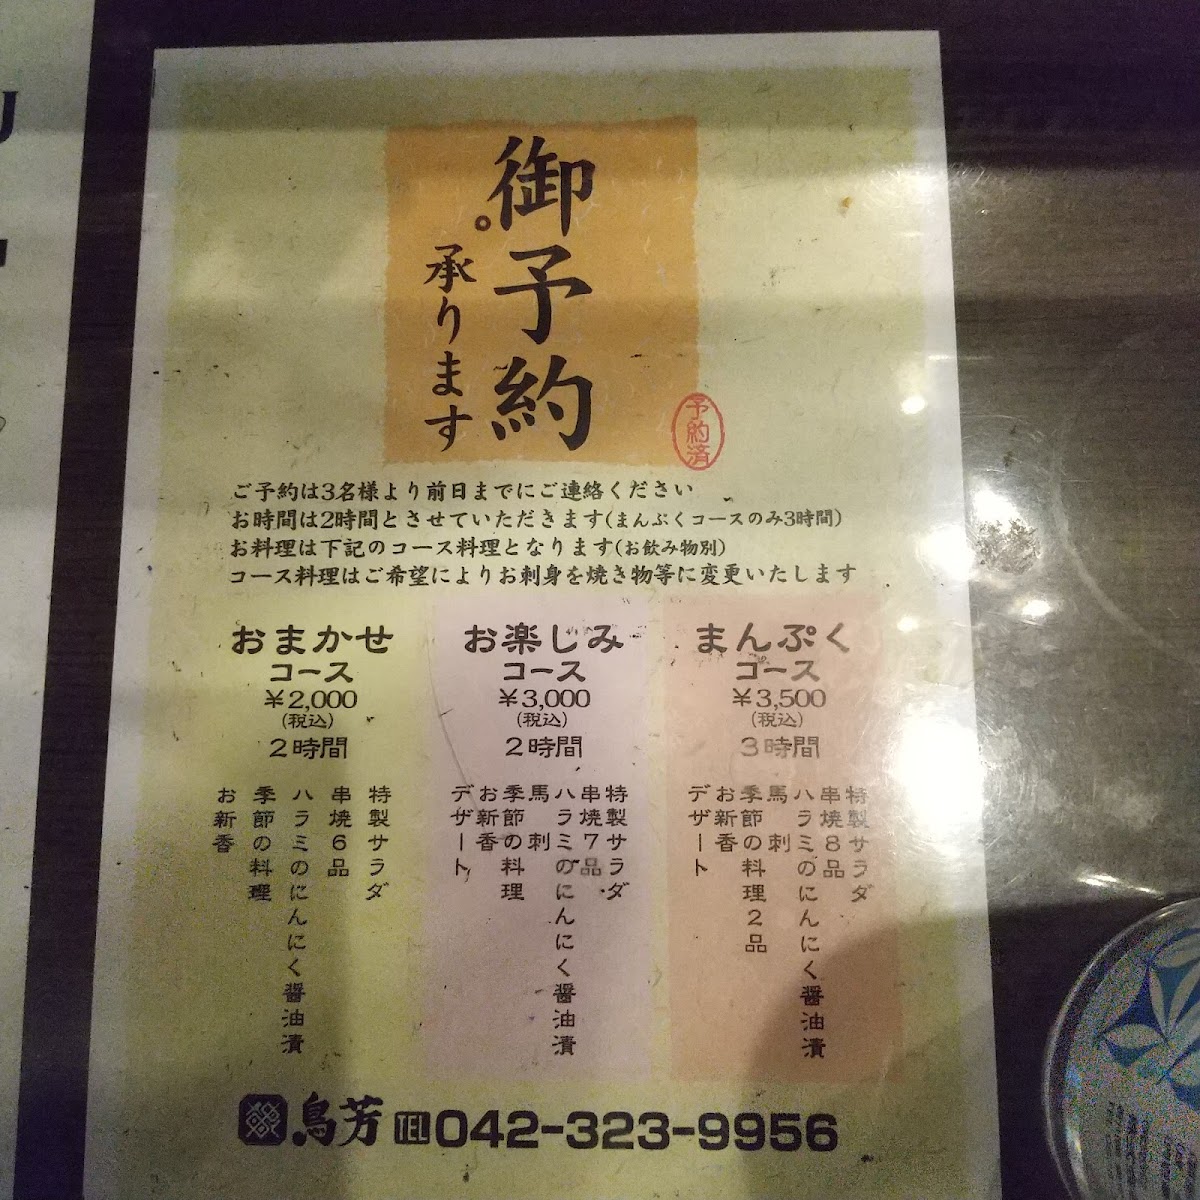 御予約
承ります。
予約済
ご予約は3名様より前日までにご連絡ください
お時間は2時間とさせていただきます(まんぷくコースのみ3時間)
お料理は下記のコース料理となります(お飲み物別)
コース料理はご希望によりお刺身を焼き物等に変更いたします
おまかせ
コース
¥2,000
(税込)
2時間
特製サラダ
串焼6品
ハラミのにんにく醤油漬
季節の料理
お新香
お楽しみ
コース
¥3,000
(税込)
2時間
特製サラダ
串焼7品
ハラミのにんにく醤油漬
馬刺
季節の料理
お新香
デザート
まんぷく
コース
¥3,500
(税込)
3時間
特製サラダ
串焼8品
ハラミのにんにく醤油漬
馬刺
季節の料理2品
お新香
デザート
鳥芳 TEL 042-323-9956